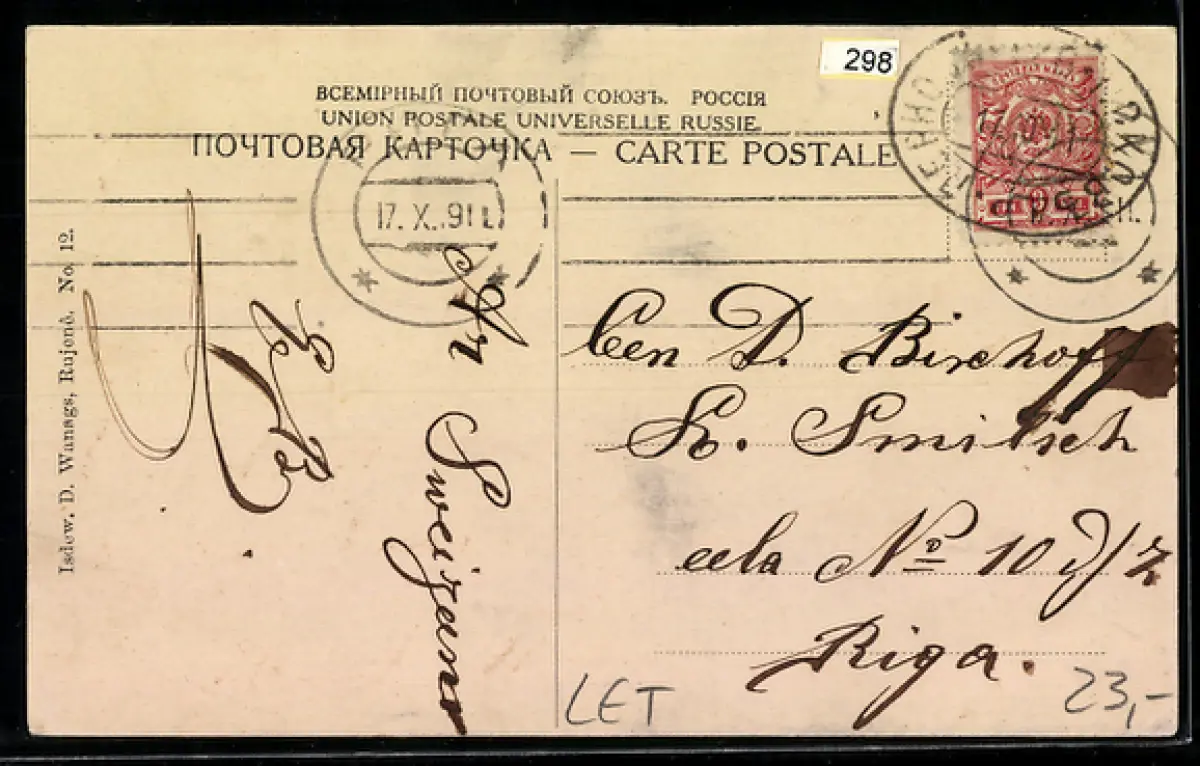 298
ВСЕМІРНЫЙ ПОЧТОВЫЙ СОЮЗЪ. РОССІЯ
UNION POSTALE UNIVERSELLE RUSSIE.
ПОЧТОВАЯ КАРТОЧКА — CARTE POSTALE
17. X. 911
Isdew. D. Wanags, Rujenâ. No. 12.
Ar Sweizanu
D. Bischoff
Smilsch
eela No 10 d/z
Riga.
LET
23,-